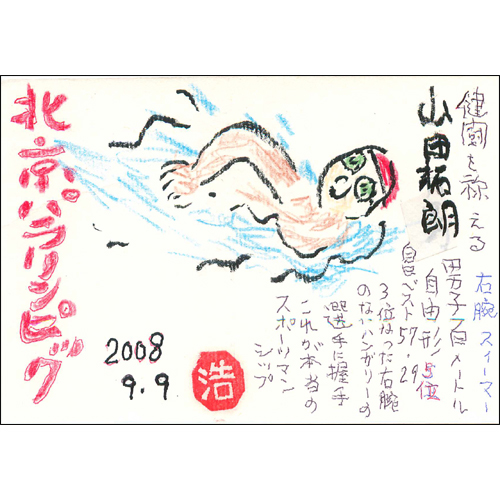 健闘を称える
山田拓朗
右腕スイーマー
男子百メートル
自由形 5位
自己ベスト57・29
3位なった右腕
のないハンガリーの
選手に握手
これが本当の
スポーツマン
シップ
北京パラリンピック
2008
9.9
浩